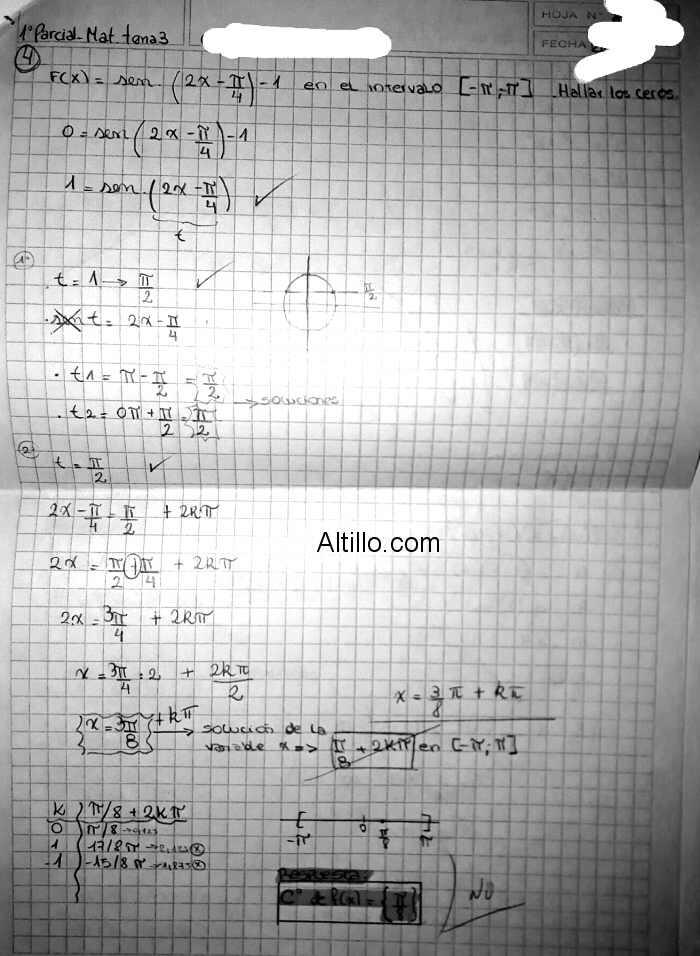 1º Parcial. Mat. tema3
HOJA Nº
FECHA
4
F(x) = sen (2x - π/4) - 1 en el intervalo [-π;π] . Hallar los ceros.
0 = sen (2x - π/4) - 1
1 = sen (2x - π/4) ✓
t
1º
. t = 1 → π/2 ✓
π/2
. sen t = 2x - π/4
. t1 = π - π/2 = π/2
→ soluciones
. t2 = 0π + π/2 = π/2
2º
t = π/2 ✓
2x - π/4 = π/2 + 2kπ
Altillo.com
2x = π/2 + π/4 + 2kπ
2x = 3π/4 + 2kπ
x = 3π/4 : 2 + 2kπ/2
x = 3/8 π + kπ
x = 3π/8 + kπ → solución de la
variable x => π/8 + 2kπ en [-π;π]
k π/8 + 2kπ
0 π/8 → 0,125
1 17/8 π → 2,125 ⓧ
-1 -15/8 π → 1,875 ⓧ
-π 0 π/8 π
Respuesta:
Cº de f(x) = {π/8}
NO